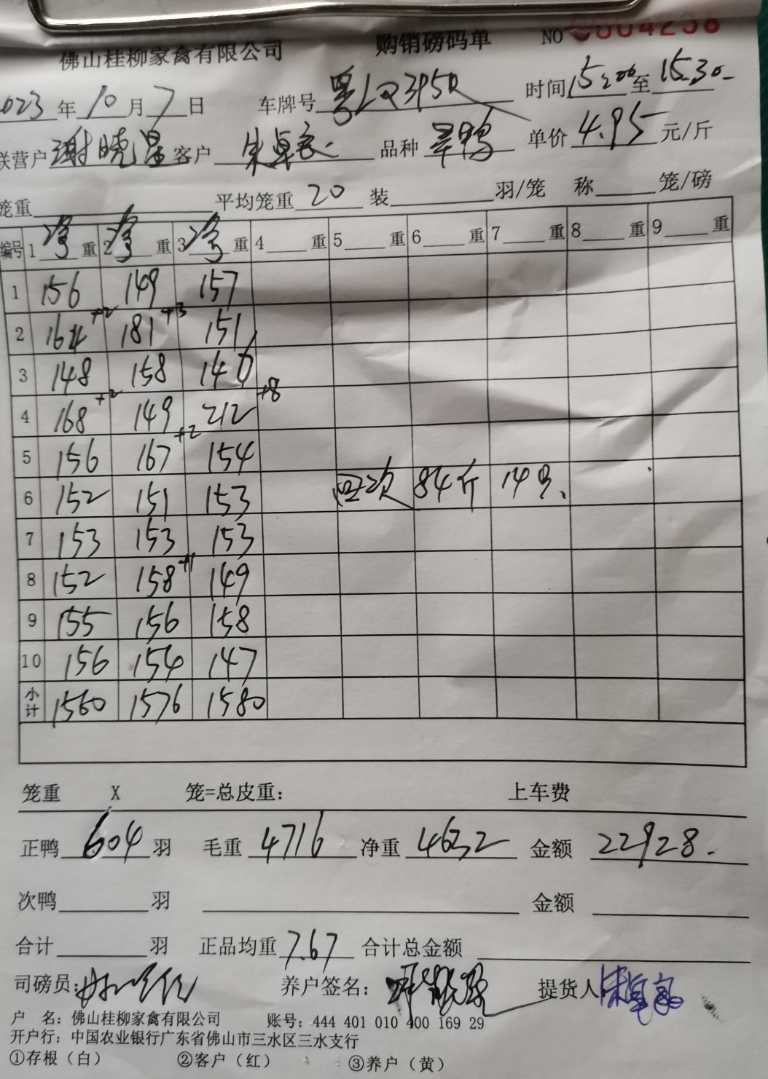 佛山桂柳家禽有限公司 购销磅码单 NO 004238
2023 年 10 月 7 日 车牌号 粤LQ3950 时间 15:00 至 15:30
联营户 谢晓星 客户 品种 单价 4.95 元/斤
笼重 平均笼重 20 装 羽/笼 称 笼/磅
编号 1 净 重 2 净 重 3 净 重 4 重 5 重 6 重 7 重 8 重 9 重
1 156 149 157
2 164 +2 181 +3 151
3 148 158 146
4 168 +2 149 212 +8
5 156 167 +2 154
6 152 151 153 回次 84斤 14只
7 153 153 153
8 152 158 +1 149
9 155 156 158
10 156 154 147
小计 1560 1576 1580
笼重 X 笼=总皮重: 上车费
正鸭 604 羽 毛重 4716 净重 4632 金额 22928.
次鸭 羽 金额
合计 羽 正品均重 7.67 合计总金额
司磅员: 养户签名: 提货人
户 名: 佛山桂柳家禽有限公司 账号: 444 401 010 400 169 29
开户行: 中国农业银行广东省佛山市三水区三水支行
①存根（白） ②客户（红） ③养户（黄）